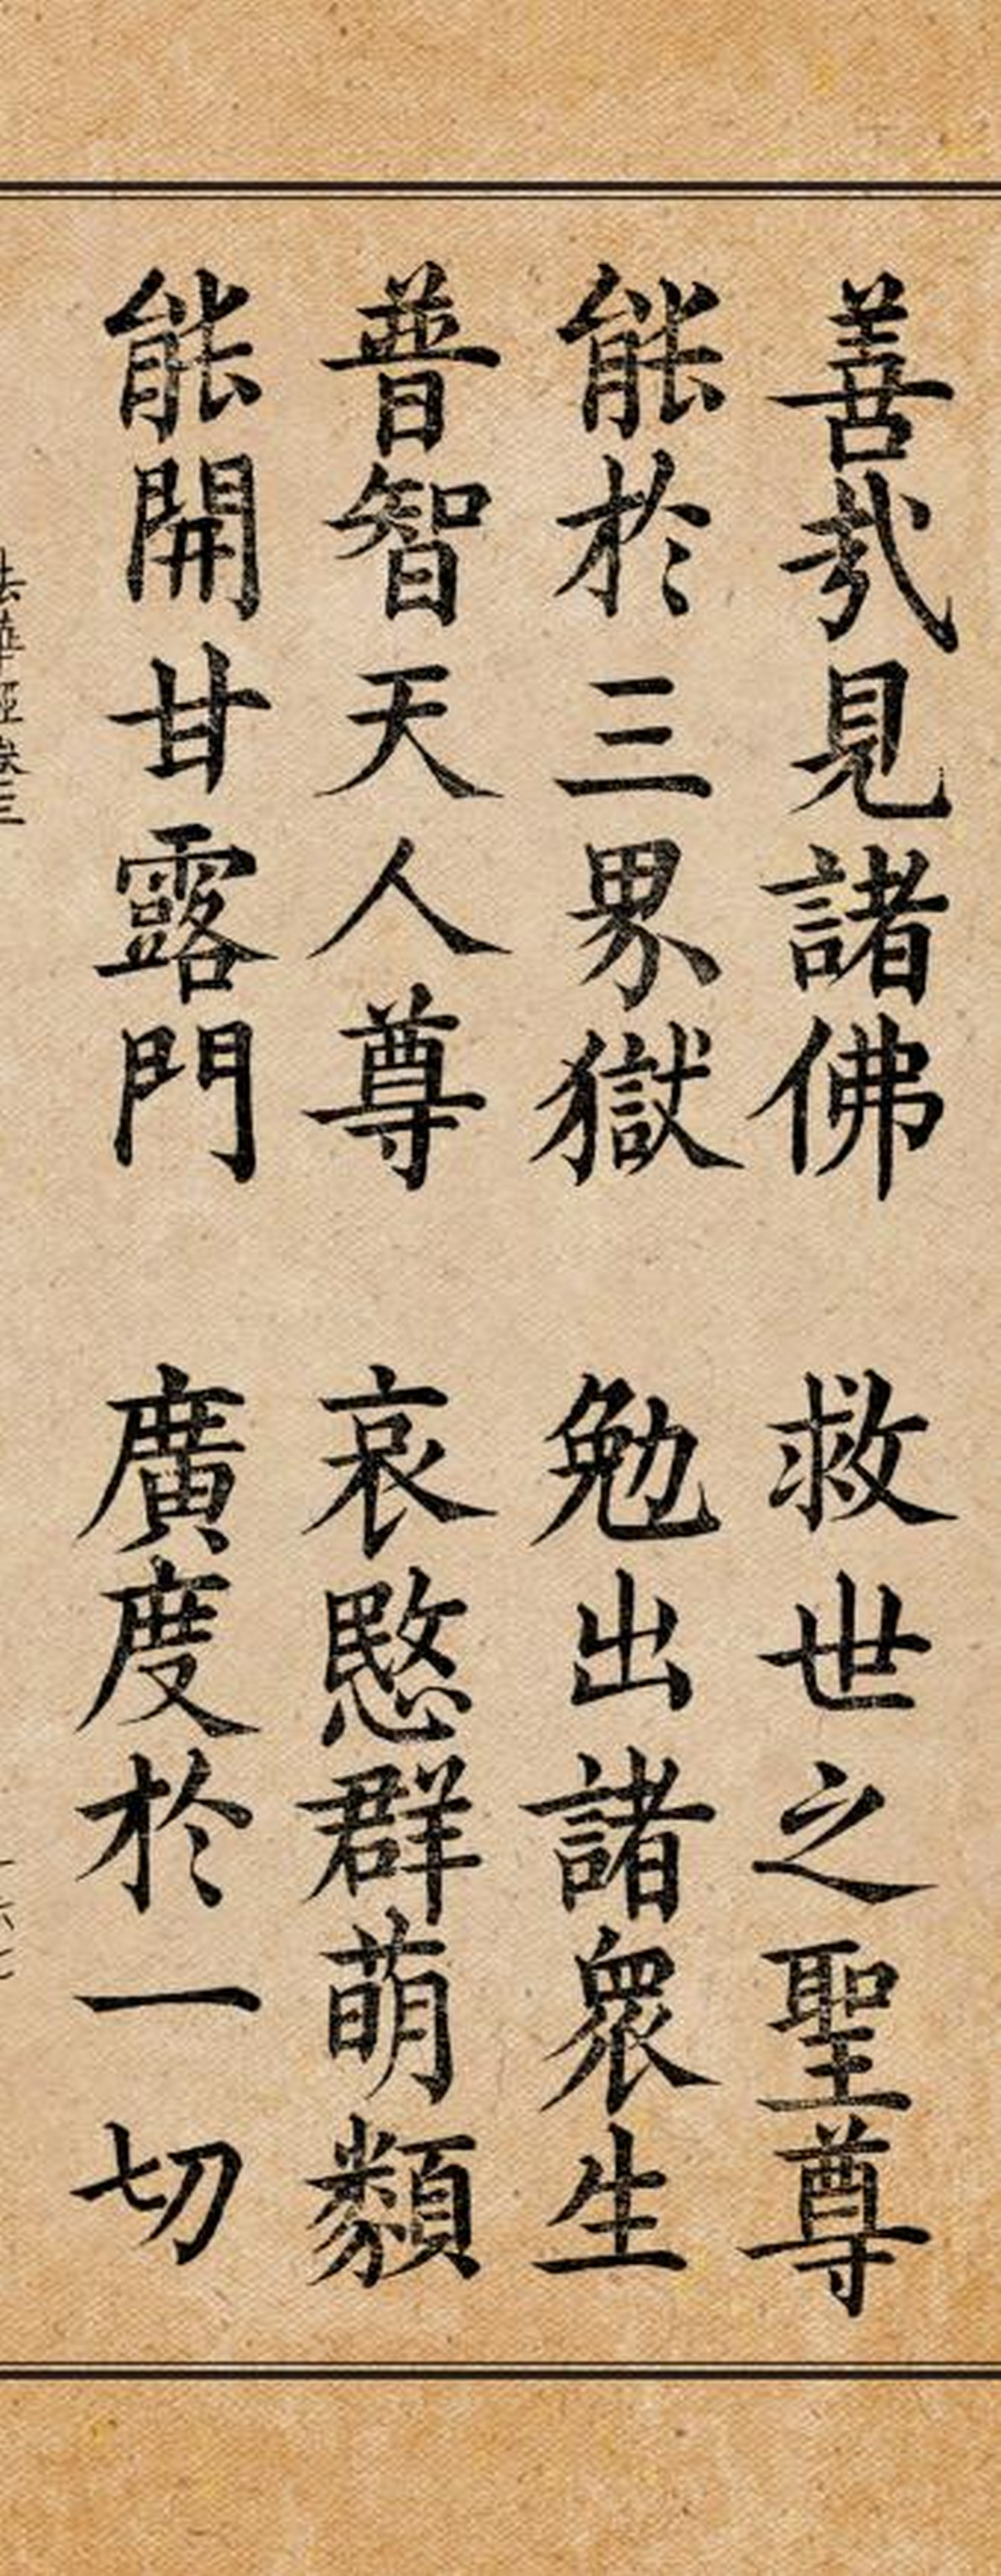 善哉見諸佛 救世之聖尊
能於三界獄 勉出諸眾生
普智天人尊 哀愍群萌類
能開甘露門 廣度於一切
法華經卷三